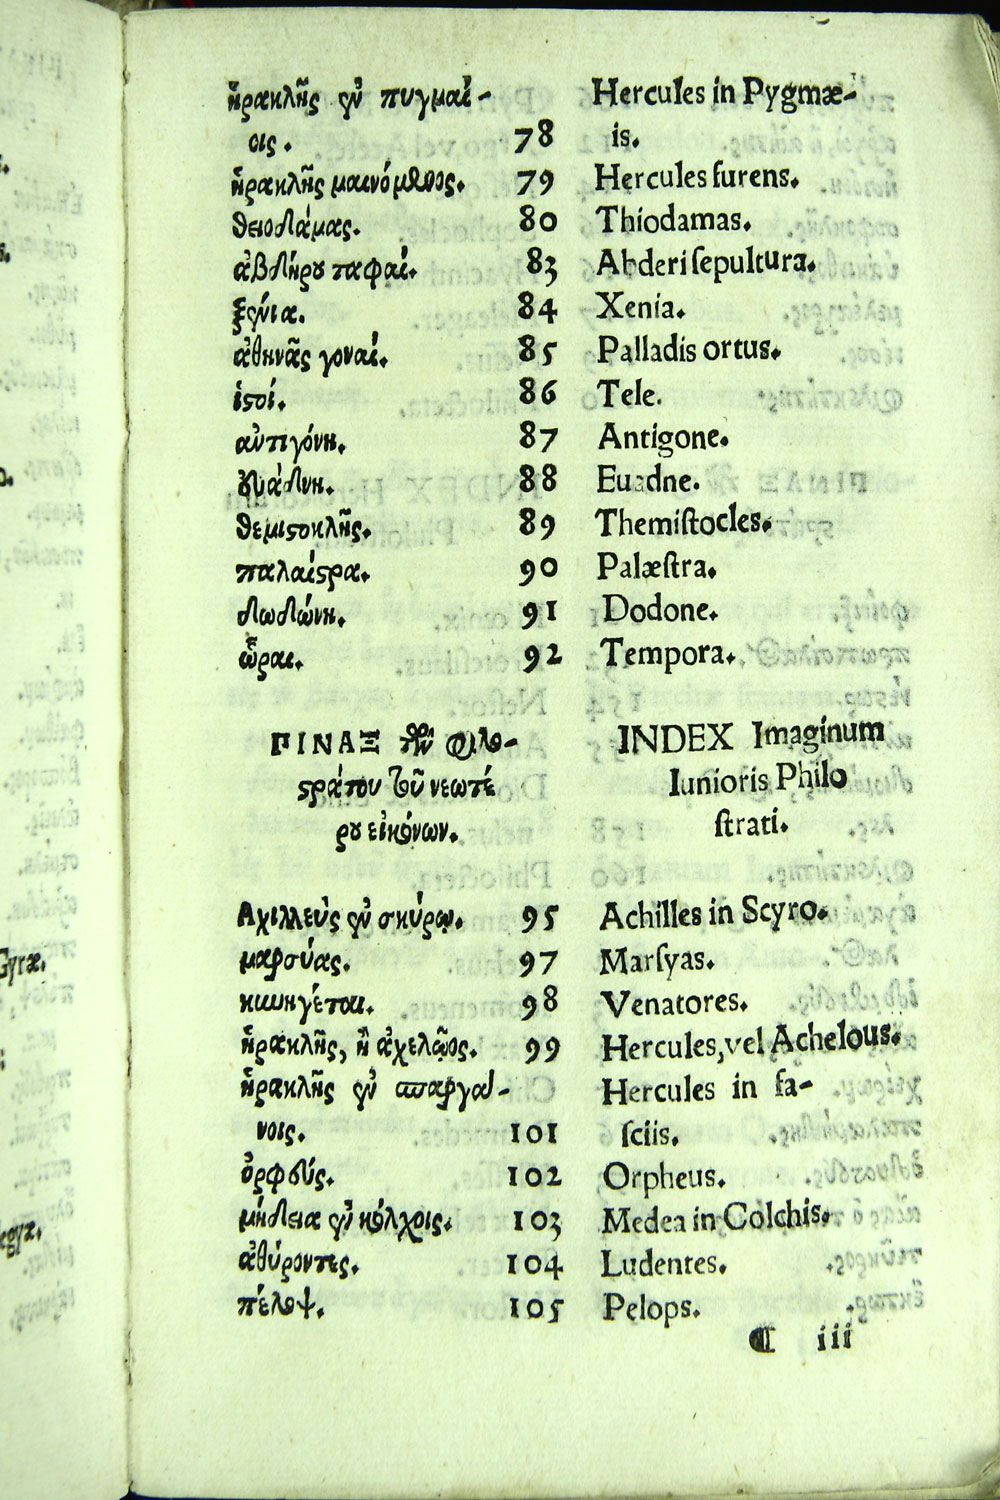 ἡρακλῆς ἐν πυγμαί- Hercules in Pygmæ-
οις. 78 is.
ἡρακλῆς μαινόμενος. 79 Hercules furens.
θειοδάμας. 80 Thiodamas.
ἀβδήρου ταφαί. 83 Abderi ſepultura.
ξένια. 84 Xenia.
ἀθηνᾶς γοναί. 85 Palladis ortus.
ἱϛοί. 86 Tele.
αντιγόνη. 87 Antigone.
ευάδνη. 88 Euadne.
θεμιϛοκλῆς. 89 Themiſtocles.
παλαίϛρα. 90 Palæſtra.
δωδώνη. 91 Dodone.
ὧραι. 92 Tempora.
ΠΙΝΑΞ τῶν φιλο- INDEX Imaginum
ϛράτου τοῦ νεωτέ Iunioris Philo
ρου εἰκόνων. ſtrati.
Αχιλλεὺς ἐν σκύρῳ. 95 Achilles in Scyro.
μαρσύας. 97 Marſyas.
κυνηγέται. 98 Venatores.
ἡρακλῆς, ἢ ἀχελῷος. 99 Hercules, vel Achelous.
ἡρακλῆς ἐν σπαργά- Hercules in fa-
νοις. 101 ſciis.
ὀρφεύς. 102 Orpheus.
μήδεια ἐν κόλχοις. 103 Medea in Colchis.
ἀθύροντες. 104 Ludentes.
πέλοψ. 105 Pelops.
¶ iii
Gyræ.